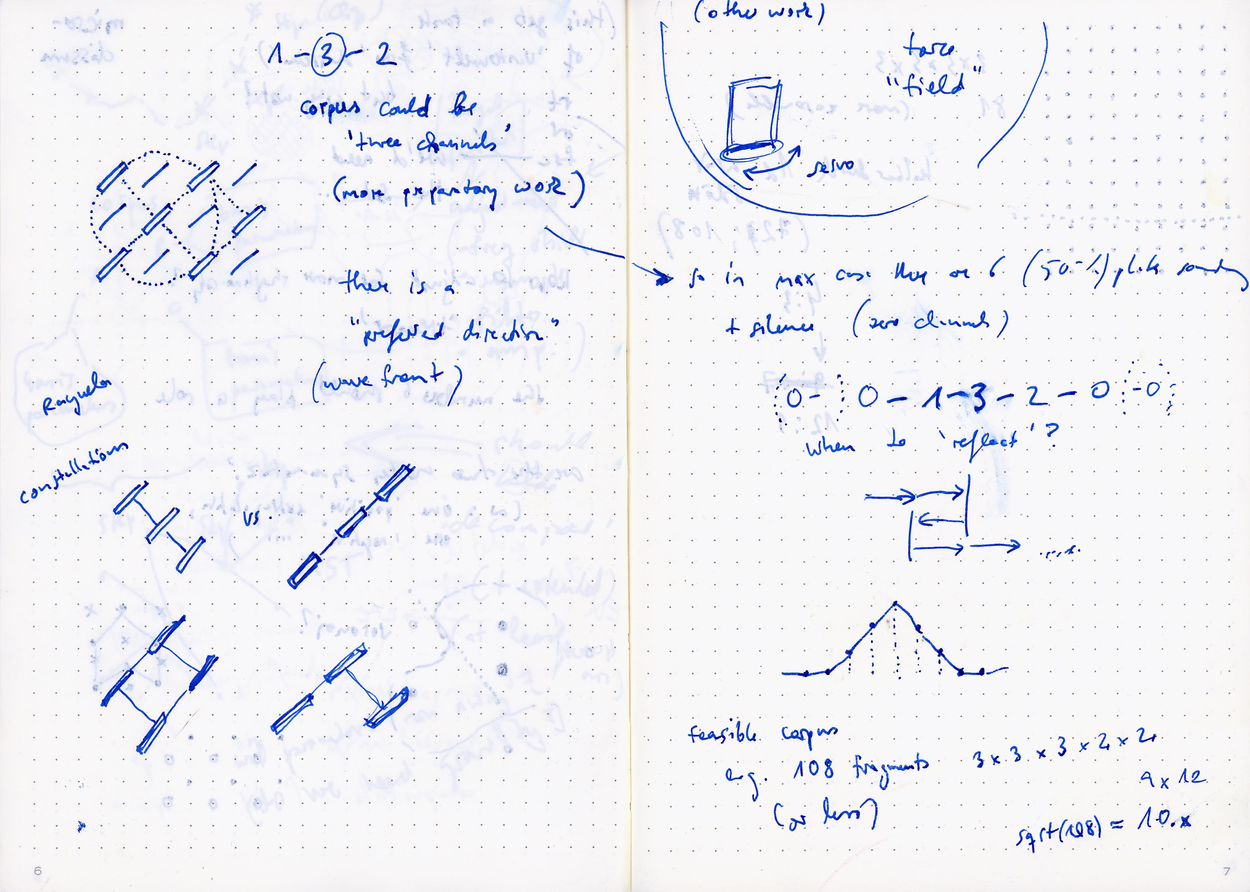 1 - 3 - 2
corpus could be
'three channels'
(more preparatory work)
there is a
"preferred direction"
(wave front)
constellations
vs.
6
(other work)
force
"field"
servo
so in max case there are 6 (50%) plate sounding
+ silence (zero channels)
(0 - ) 0 - 1 - 3 - 2 - 0 ( - 0 )
when to 'reflect'?
.....
feasible corpus
e.g. 108 fragments 3 x 3 x 3 x 2 x 2
9 x 12
(or less)
sqrt(108) = 10.x
7